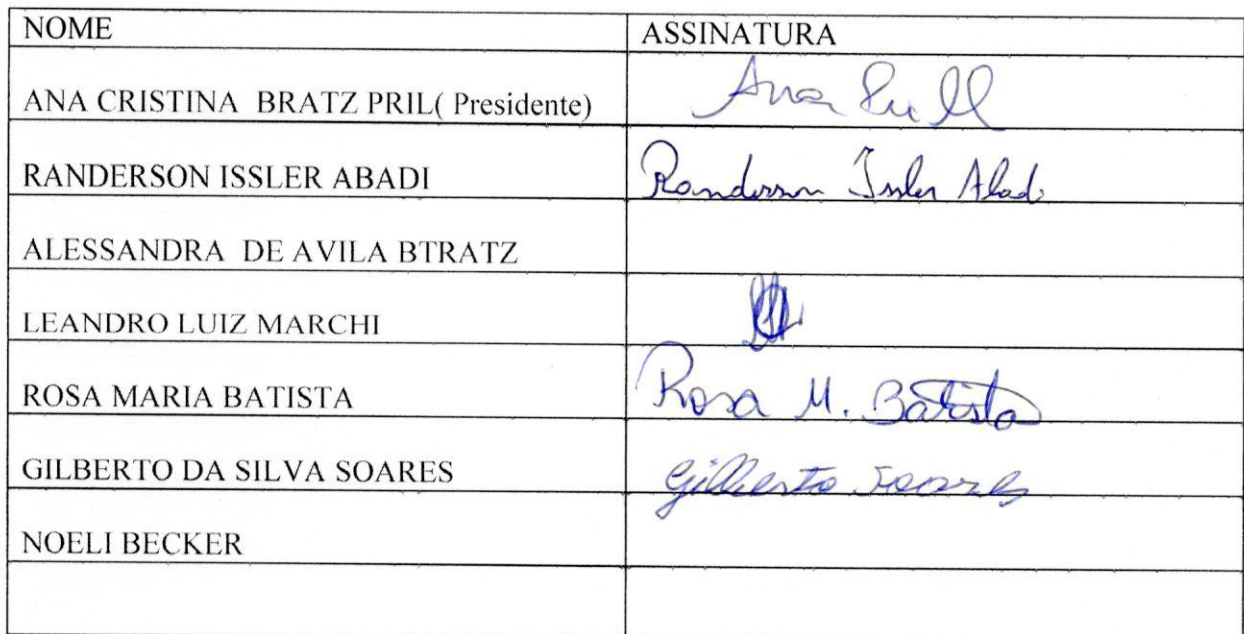 NOME ASSINATURA
ANA CRISTINA BRATZ PRIL( Presidente) Ana Prill
RANDERSON ISSLER ABADI Randerson Issler Abadi
ALESSANDRA DE AVILA BTRATZ
LEANDRO LUIZ MARCHI
ROSA MARIA BATISTA Rosa M. Batista
GILBERTO DA SILVA SOARES Gilberto Soares
NOELI BECKER